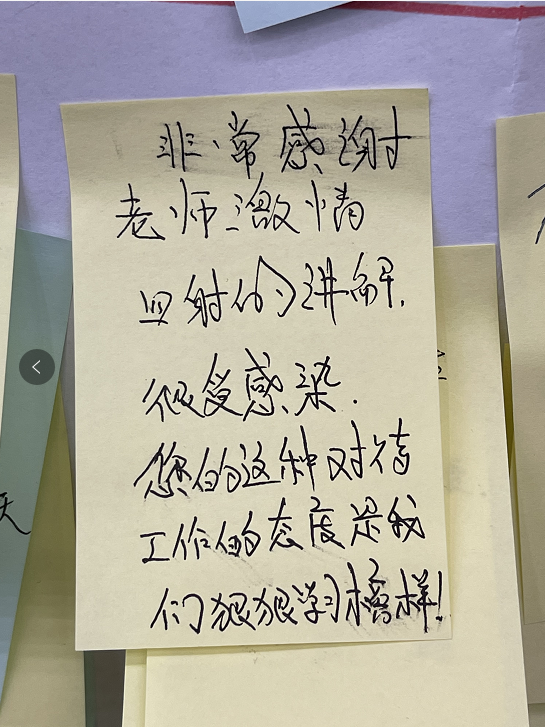 非常感谢
老师激情
四射的讲解.
很受感染.
您的这种对待
工作的态度是我
们狠狠学习榜样!
天